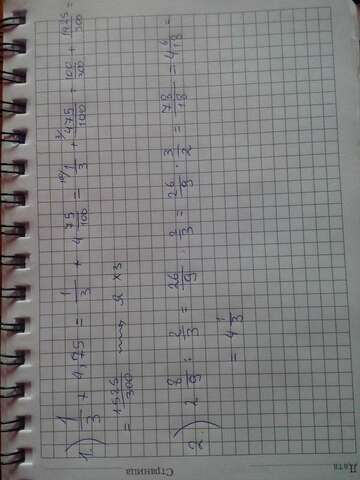 1) 1/3 + 4,75 = 1/3 + 4 75/100 = 100/1/3 + 3/475/100 = 100/300 + 1425/300 =
= 1525/300
2) 2 8/9 : 2/3 = 26/9 : 2/3 = 26/9 · 3/2 = 78/18 = 4 6/18 =
= 4 1/3
Страница
Дата